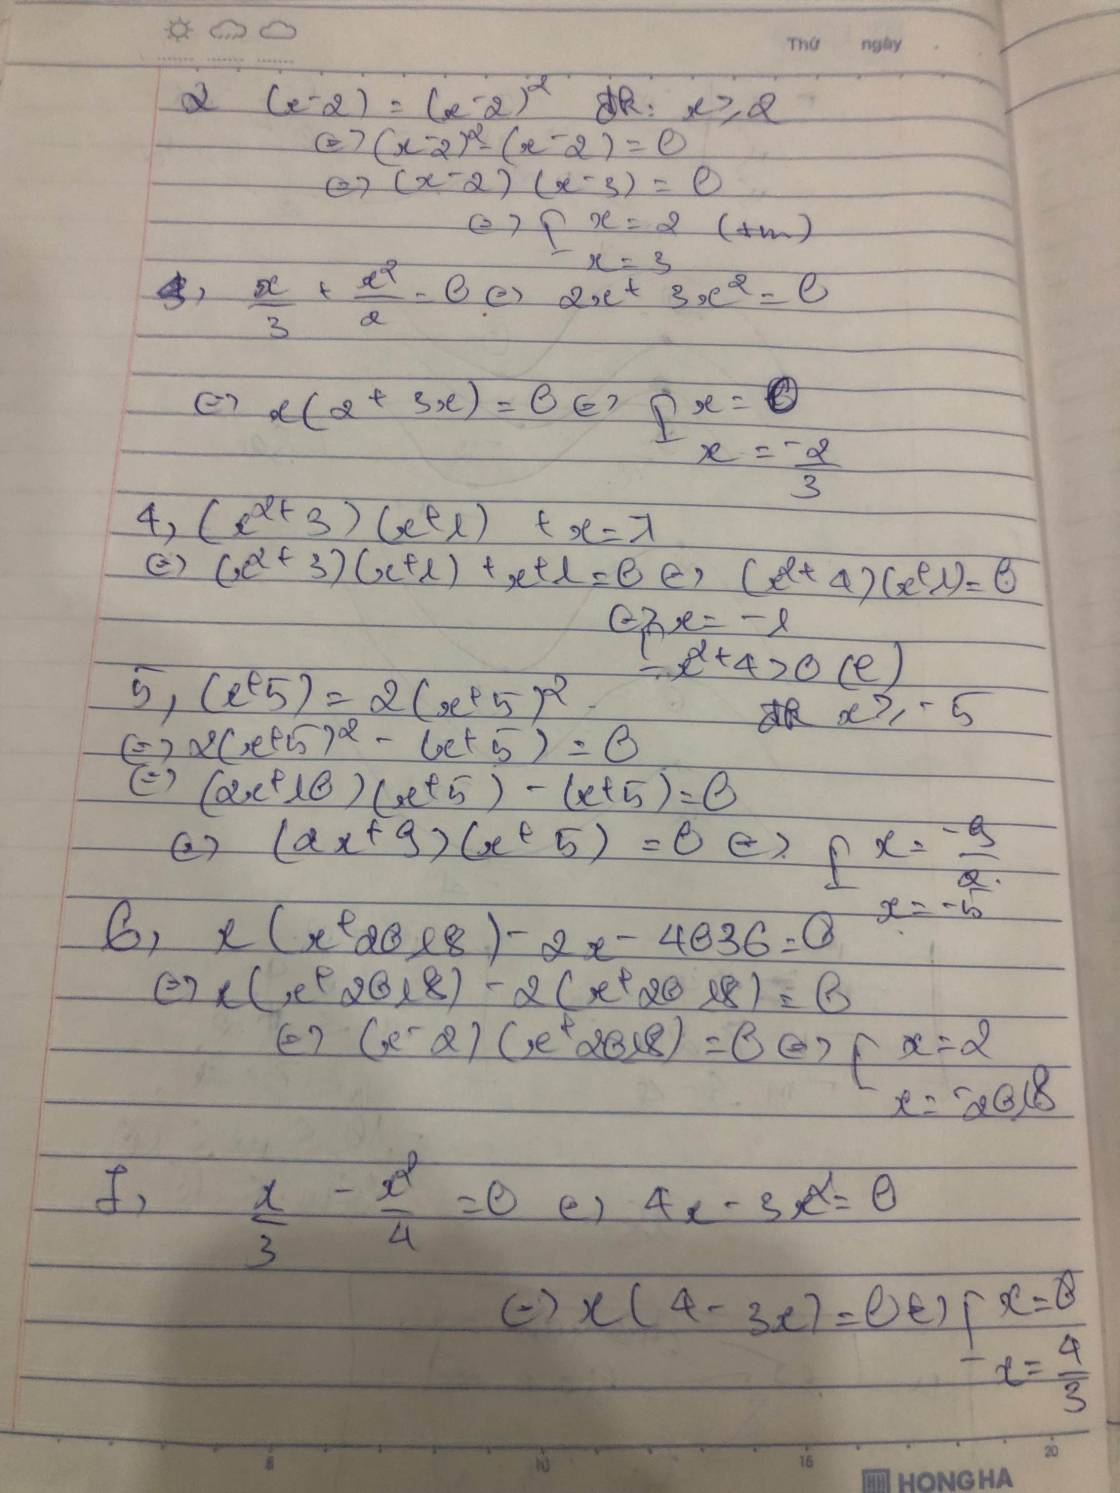 Thứ ngày
2 (x-2) = (x-2)² ĐK: x ≥ 2
⇔ (x-2)² - (x-2) = 0
⇔ (x-2) (x-3) = 0
⇔ [ x = 2 (tm)
x = 3
3, x/3 + x²/2 = 0 ⇔ 2x + 3x² = 0
⇔ x(2 + 3x) = 0 ⇔ [ x = 0
x = -2/3
4, (x² + 3) (x+1) + x = -1
⇔ (x² + 3)(x+1) + x+1 = 0 ⇔ (x² + 4)(x+1) = 0
⇔ [ x = -1
x² + 4 > 0 (l)
5, (x+5) = 2(x+5)² ĐK x ≥ -5
⇔ 2(x+5)² - (x+5) = 0
⇔ (2x+10)(x+5) - (x+5) = 0
⇔ (2x+9)(x+5) = 0 ⇔ [ x = -9/2
x = -5
6, x(x+2018) - 2x - 4036 = 0
⇔ x(x+2018) - 2(x+2018) = 0
⇔ (x-2)(x+2018) = 0 ⇔ [ x = 2
x = -2018
7, x/3 - x²/4 = 0 ⇔ 4x - 3x² = 0
⇔ x(4 - 3x) = 0 ⇔ [ x = 0
x = 4/3
8 10 15 20
HONG HA